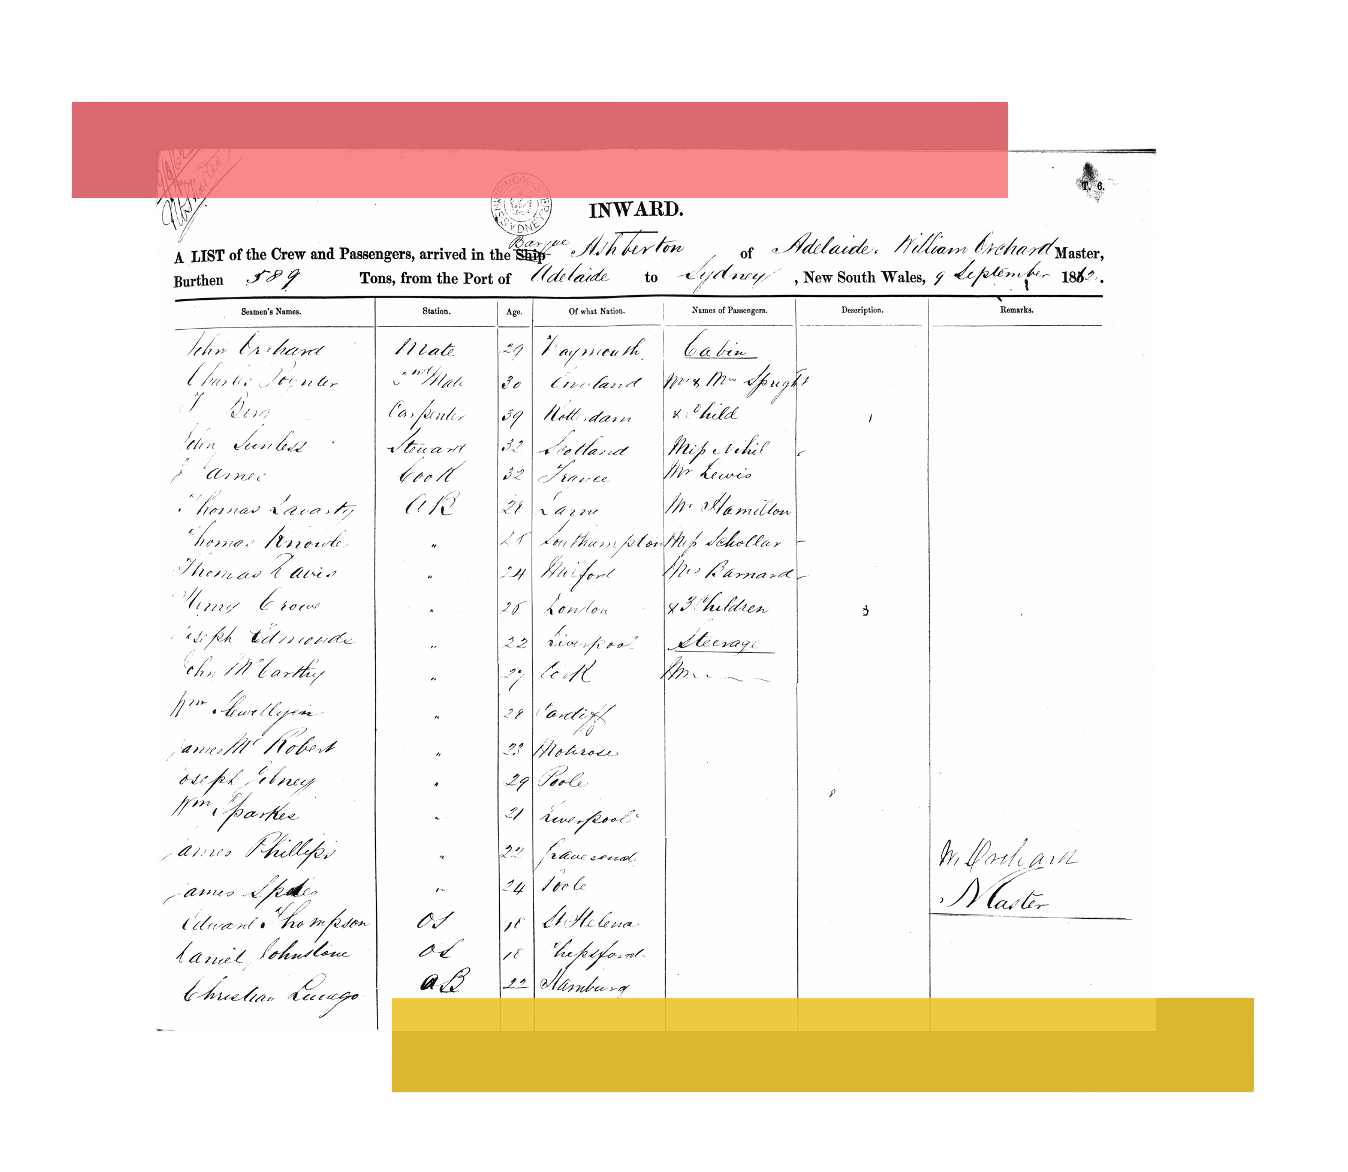 T. 6.
INWARD.
A LIST of the Crew and Passengers, arrived in the Ship Barque Ashberton of Adelaide. William Orchard Master,
Burthen 589 Tons, from the Port of Adelaide to Sydney, New South Wales, 9 September 1862.
Seamen's Names. Station. Age. Of what Nation. Names of Passengers. Description. Remarks.
John Orchard Mate 29 Cabin
Charles Poynter 2nd Mate 30 England Mr & Mrs Spright
Carpenter 39 Rotterdam & Child 1
John Sunless Steward 32 Scotland Miss Nihil
James Cook 32 France Mr Lewis
Thomas Lavarty AB 28 Larne Mr Hamilton
Thomas Knowle " Southampton Miss Schollar
Thomas Davis " 24 Milford Mrs Barnard
Henry Crowe " London & 3 Children 3
Joseph Edmonds " 22 Liverpool Steerage
John McCarthy " 27 Cork
Wm Llewellyn " Cardiff
James McRobert " 23 Motrose
Joseph Gibney " 29 Poole
Wm Sparkes " 21 Liverpool
James Phillips " 22 Gravesend W. Orchard
James " 24 Poole Master
Edward Thompson OS 18 St Helena
Daniel Johnstone OS 18
Christian AB 22 Hamburg